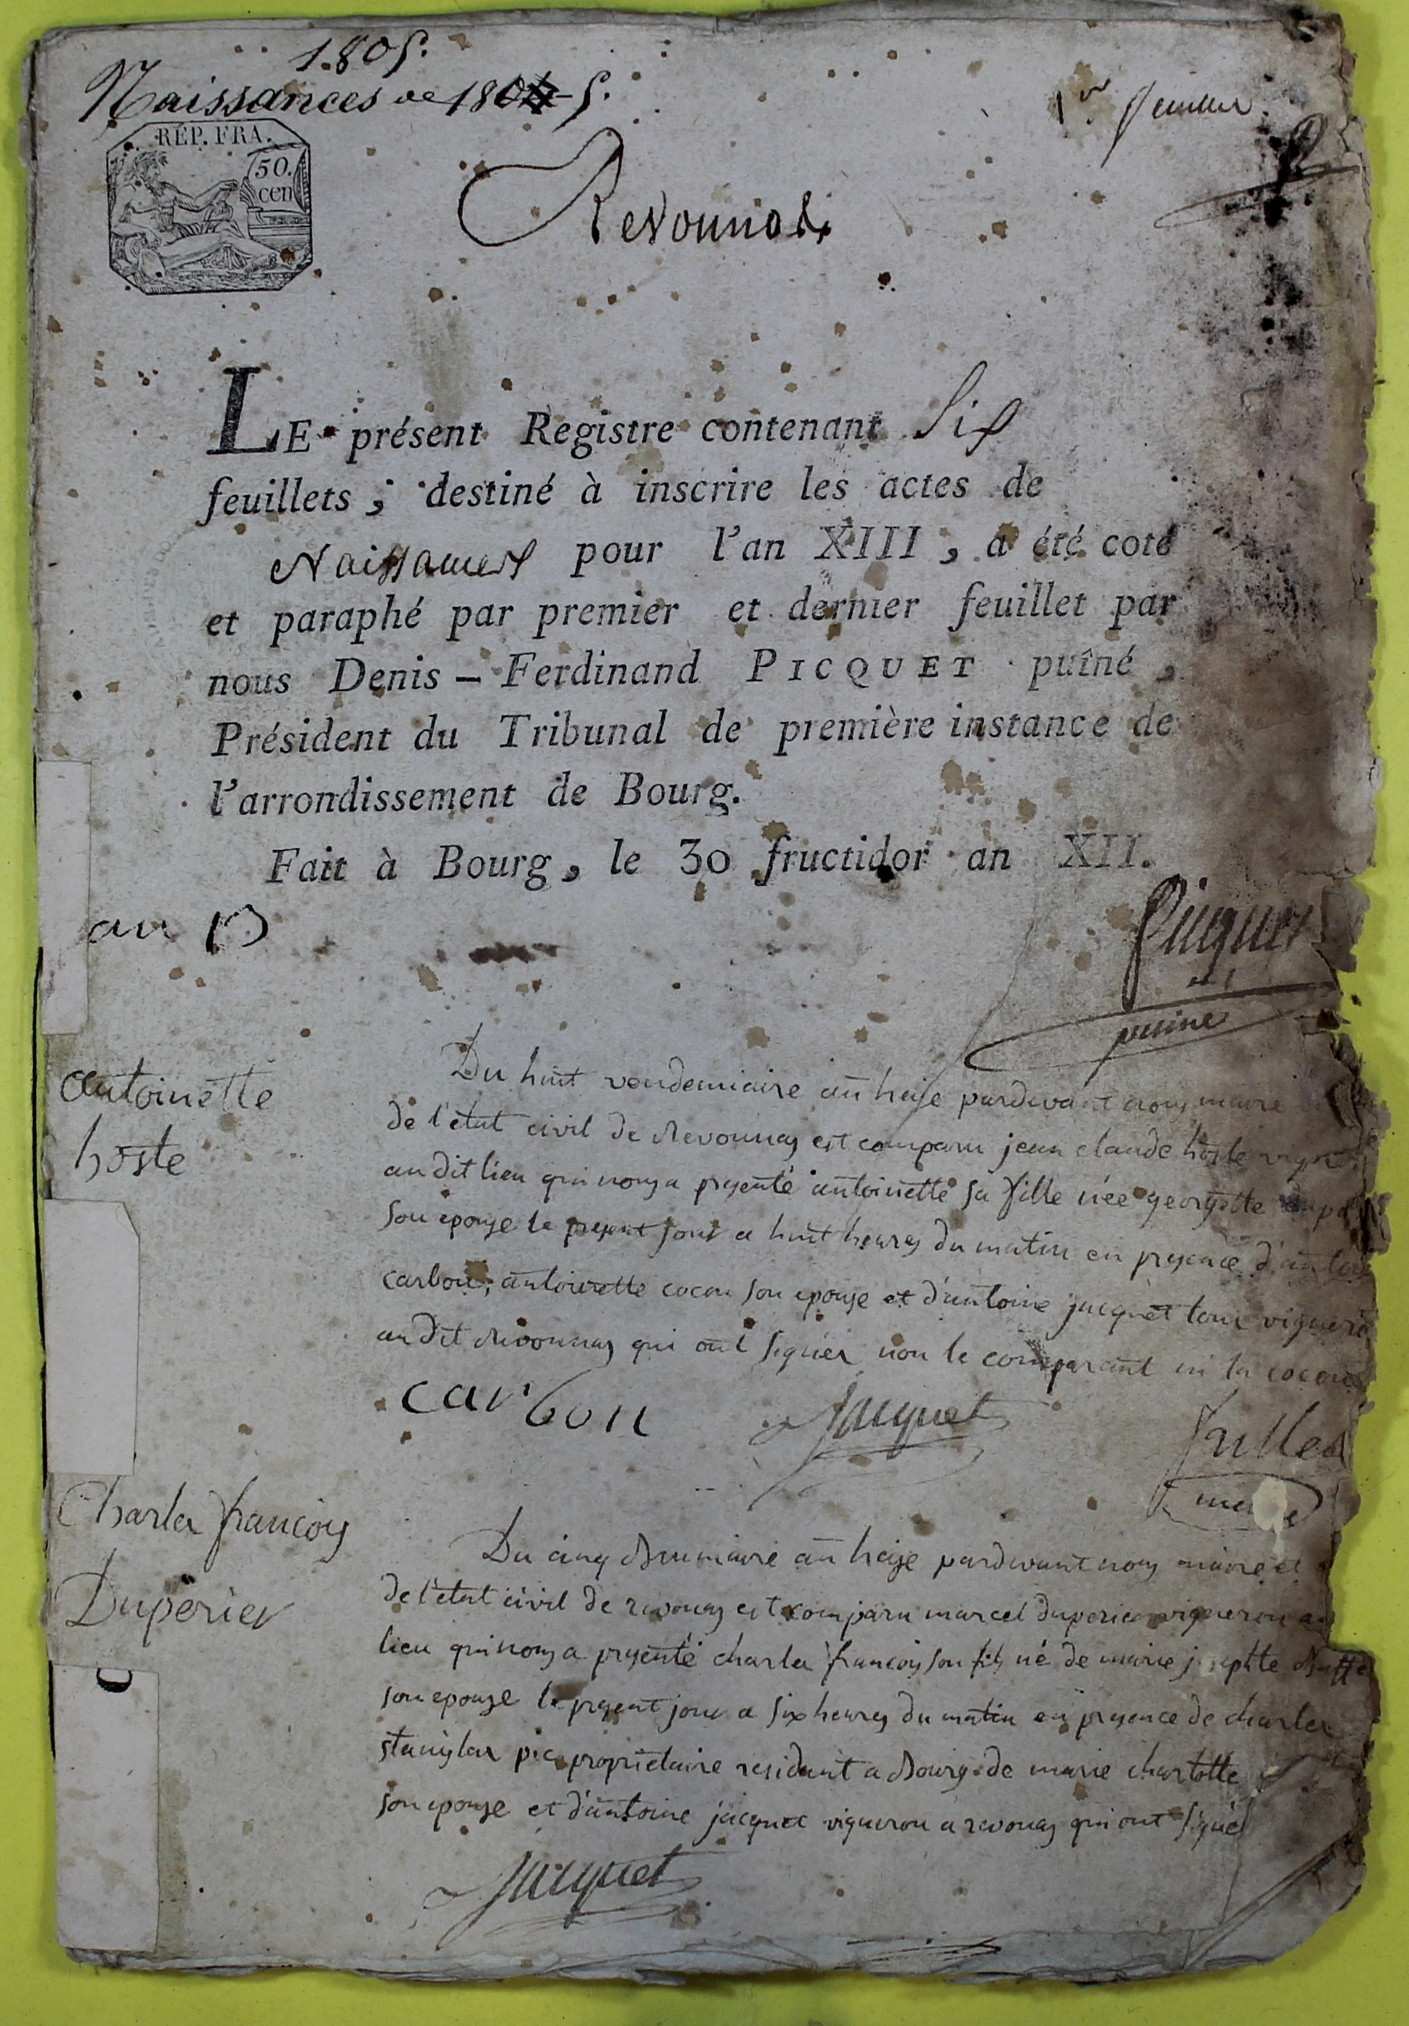 1805.
Naissances de 1804 5.
1er feuillet
RÉP. FRA.
50.
cen
Revonnas
LE présent Registre contenant Six
feuillets, destiné à inscrire les actes de
Naissances pour l'an XIII, a été coté
et paraphé par premier et dernier feuillet par
nous Denis-Ferdinand PICQUET puîné,
Président du Tribunal de première instance de
l'arrondissement de Bourg.
Fait à Bourg, le 30 fructidor an XII.
an 13
Picquet
puine
antoinette
hoste
Du huit vendemiaire an treise pardevant nous maire
de l'état civil de Revonnas est comparu jean claude hoste
au dit lieu qui nous a presenté antoinette sa fille née georgette
son epouse le present jour a huit heures du matin en presence
carbon, antoinette cocon son epouse et d'antoine jacquet tous vignerons
au dit Revonnas qui ont signés non le comparant ni la cocon
carbon
Jacquet
Charles françois
Duperier
Du cinq Brumaire an treise pardevant nous maire et
de l'état civil de revonas est comparu marcel duperier vigneron au
lieu qui nous a presenté charles françois son fils né de marie
son epouse le present jour a six heures du matin en presence de charles
stanislas pic proprietaire residant a Bourg de marie charlotte
son epouse et d'antoine jacquet vigneron a revonas qui ont signés
Jacquet